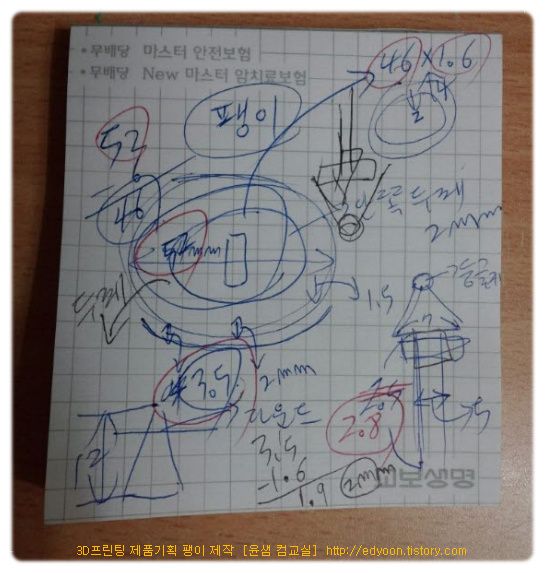 • 무배당 마스터 안전보험
• 무배당 New 마스터 암치료보험
46 x 1.6
팽이
52
46
두께
2mm
mm
1.5
두께
3.5
2mm
라운드
3.5
-1.6
1.9
2mm
2.8
12
교보생명
3D프린팅 제품기획 팽이 제작 [윤샘 컴교실] http://edyoon.tistory.com